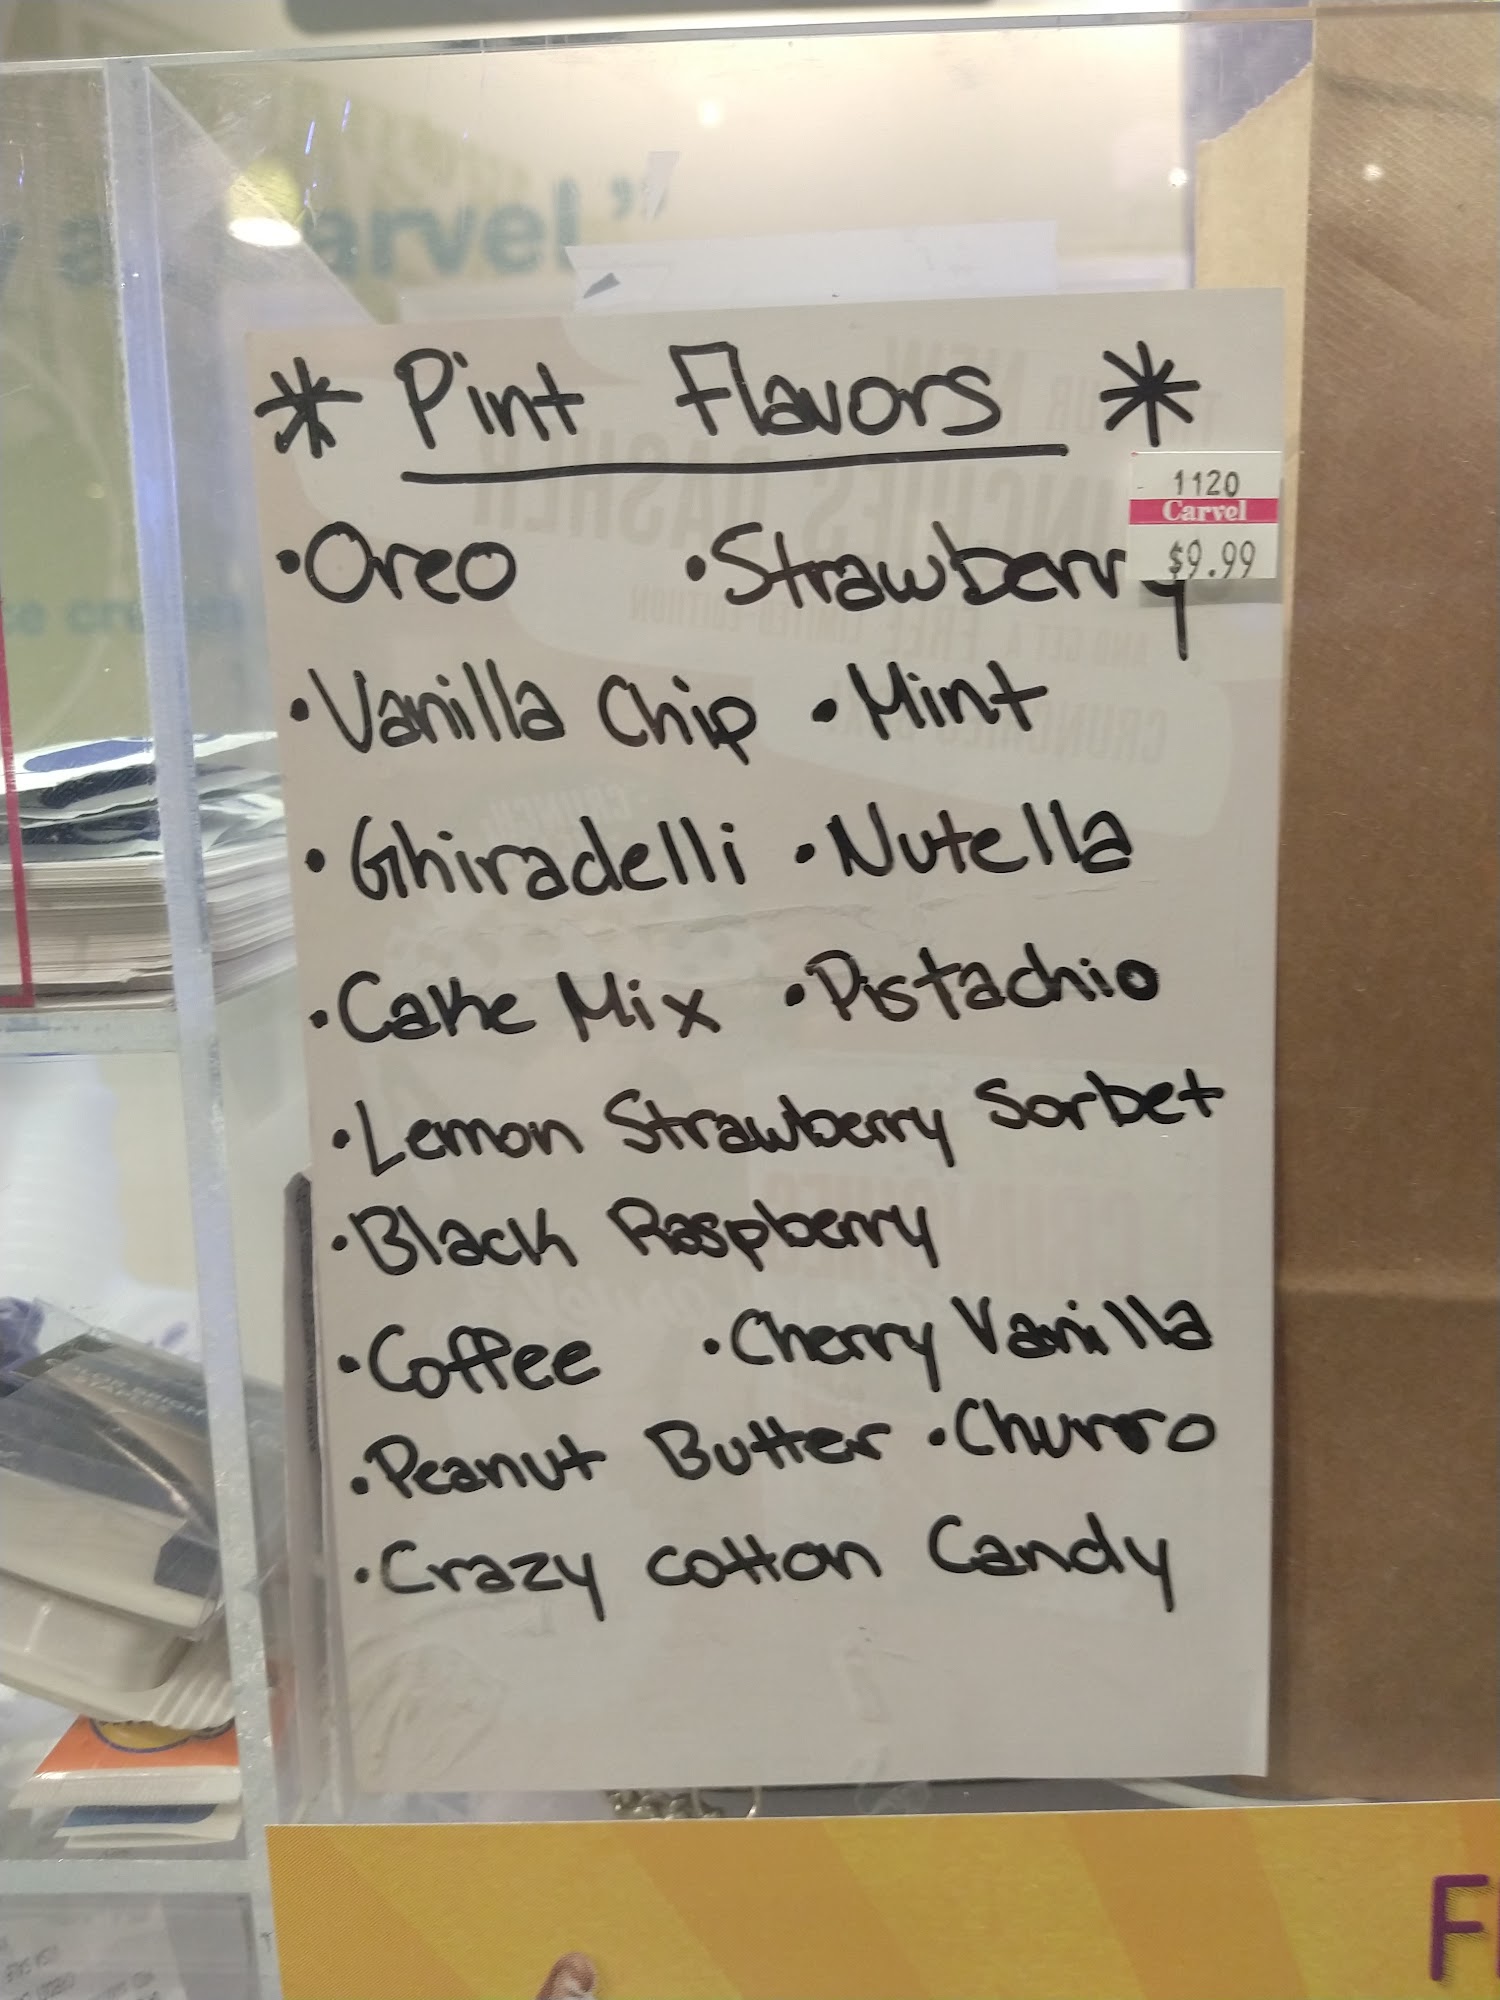 arvel"
* Pint Flavors *
1120
Carvel
$9.99
•Oreo •Strawberry
•Vanilla Chip •Mint
•Ghiradelli •Nutella
•Cake Mix •Pistachio
•Lemon Strawberry Sorbet
•Black Raspberry
•Coffee •Cherry Vanilla
•Peanut Butter •Churro
•Crazy cotton Candy
F